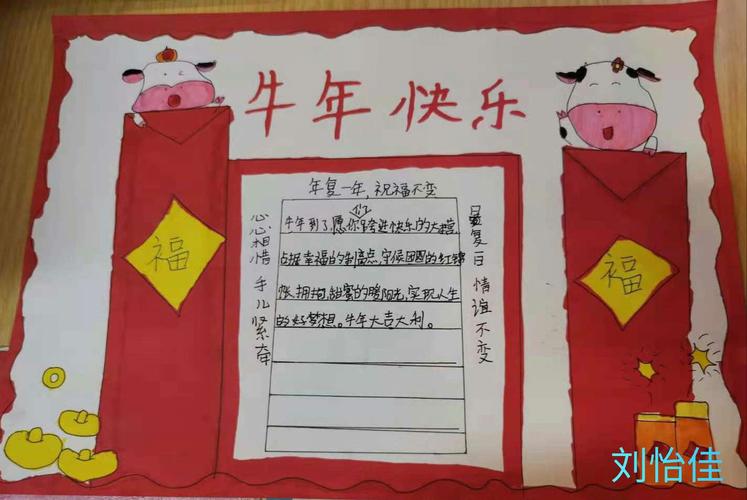 牛年快乐
福
福
年复一年,祝福不变
心心相惜 手儿紧牵
们
牛年到了,愿你夸进快乐的大营,
占据幸福的制高点,守候团圆的红
张,拥抱甜蜜的暖阳光,实现人生
的好梦想。牛年大吉大利。
日复一日 情谊不变
刘怡佳